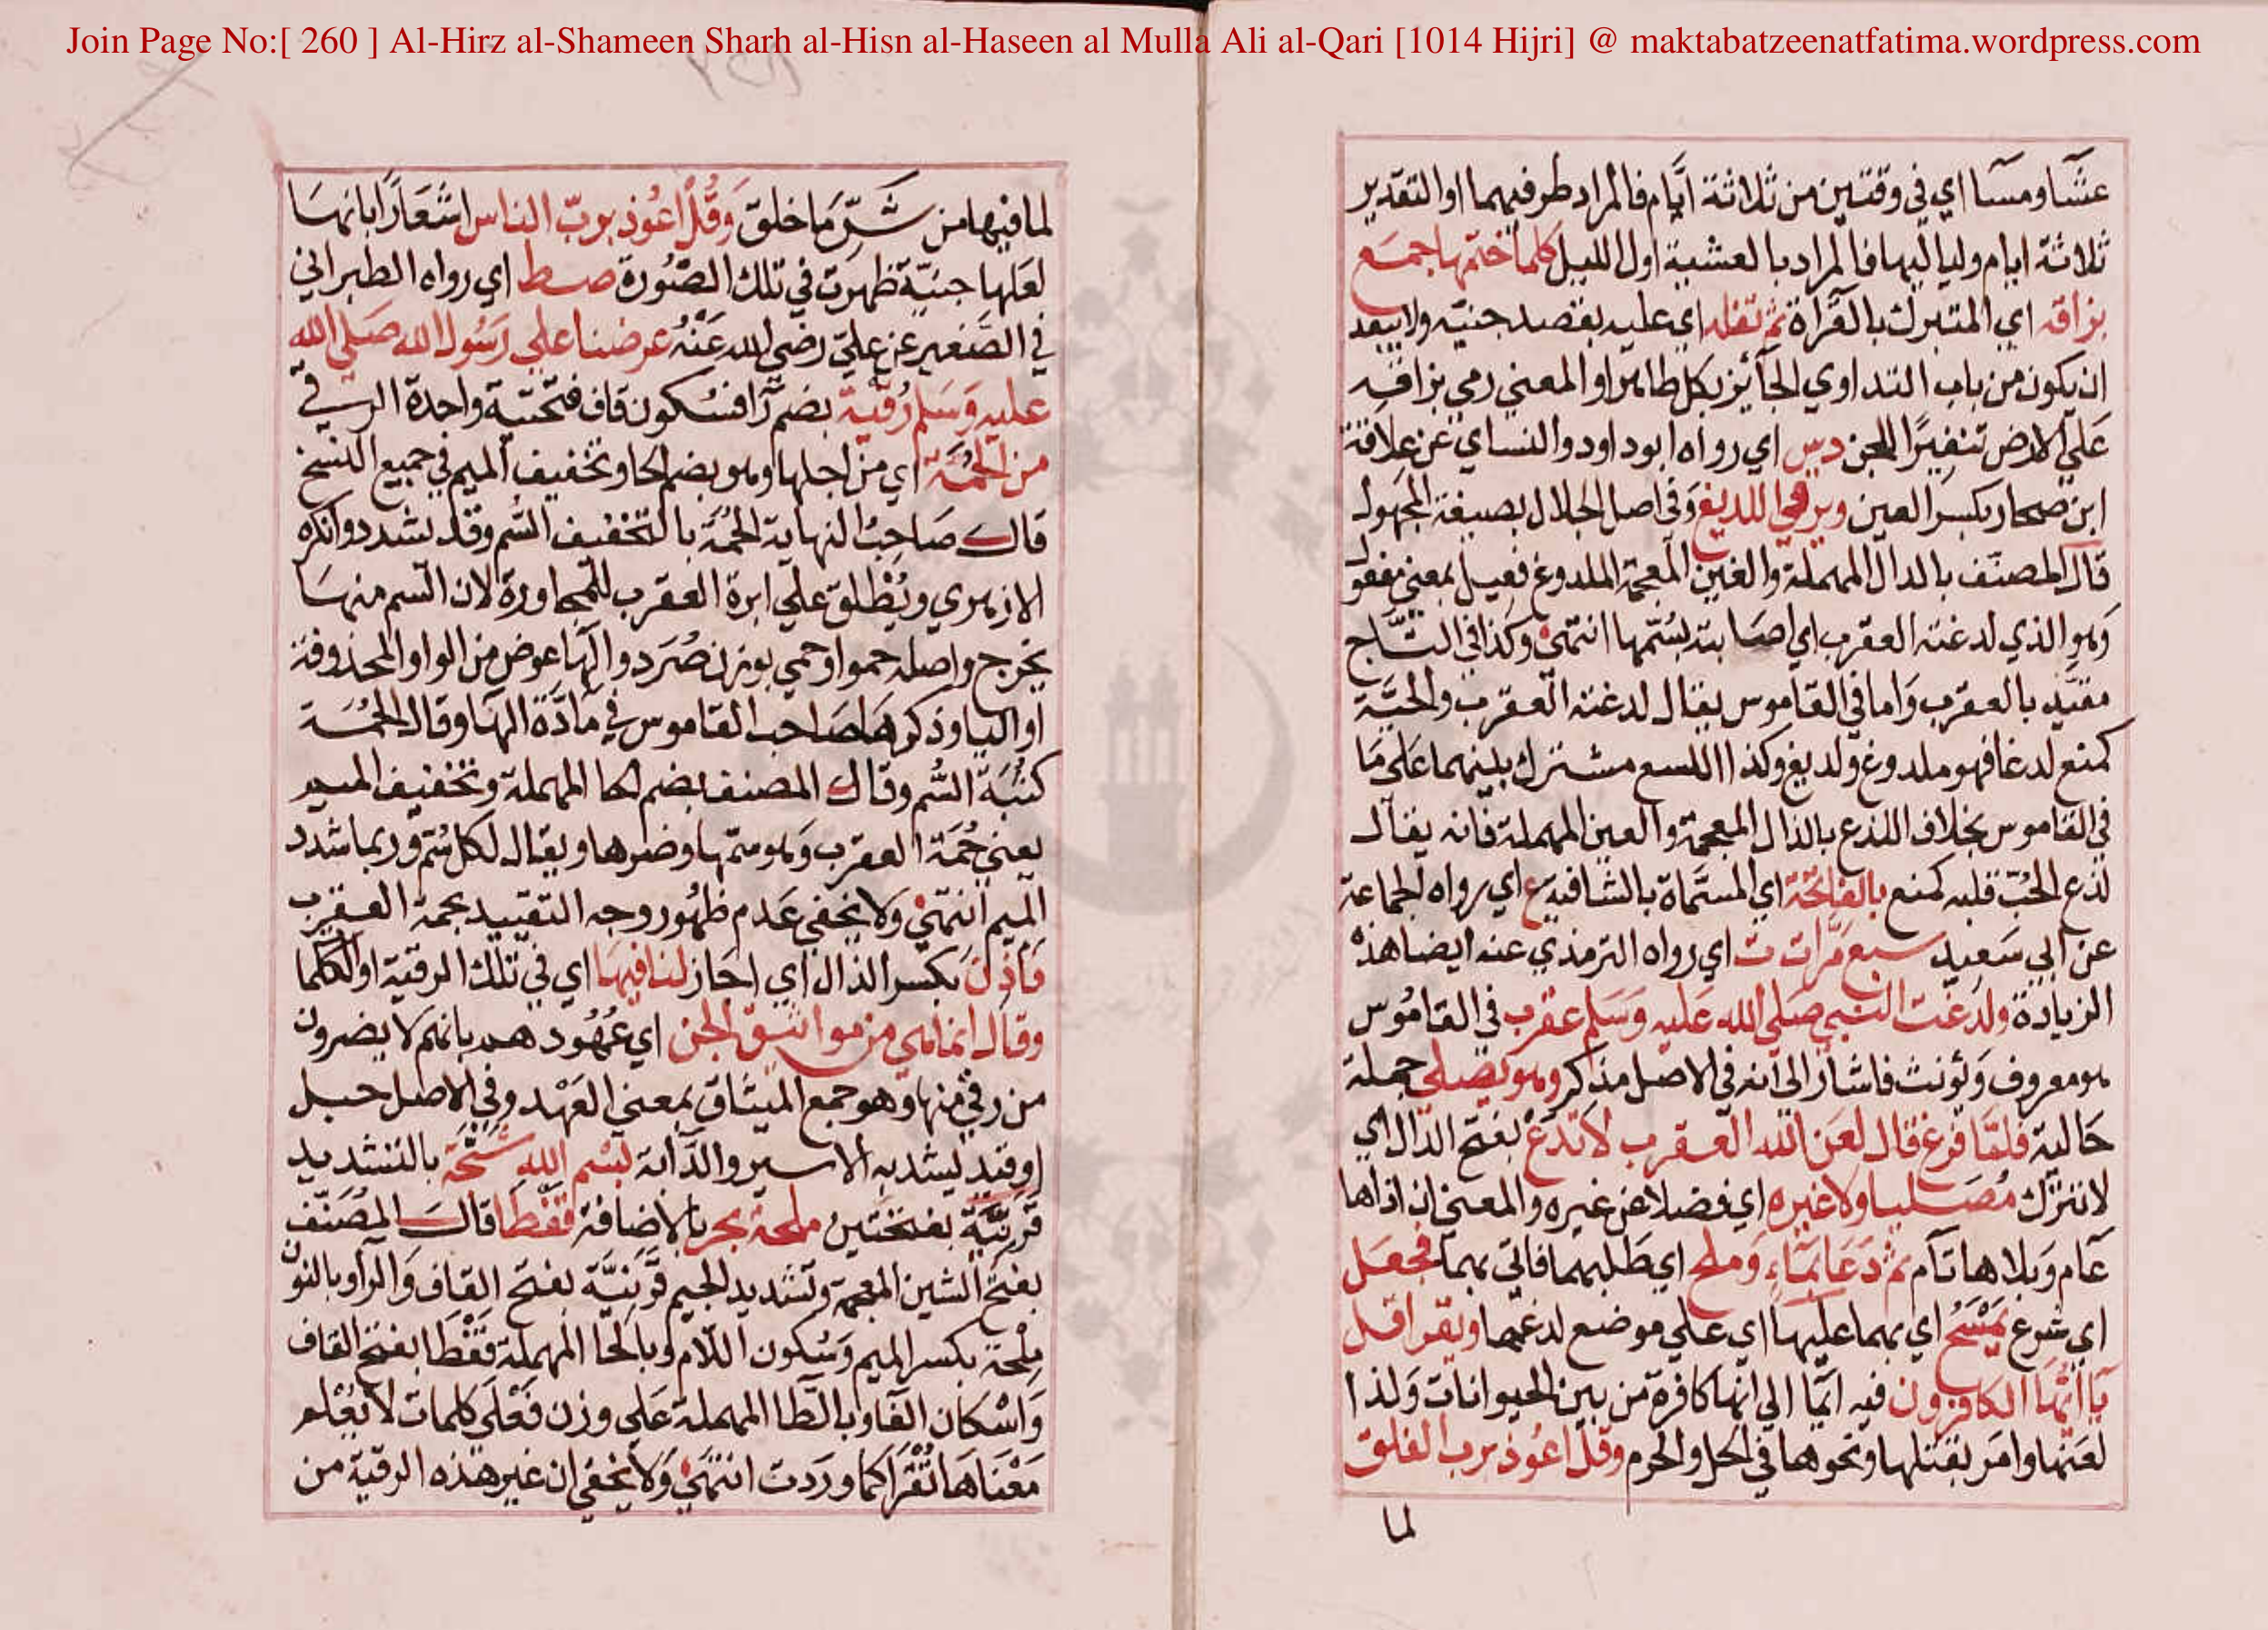 Join Page No:[ 260 ] Al-Hirz al-Shameen Sharh al-Hisn al-Haseen al Mulla Ali al-Qari [1014 Hijri] @ maktabatzeenatfatima.wordpress.com
عشا ومسا اي في وقتين من ثلاثة ايام فالمراد طرفيهما او التقدير
ثلاثة ايام ولياليها فالمراد بالعشية اول الليل كلما ختمها جمع
بزاقه اي المتبرك بالقراة ثم تفله اي عليه بقصد جنيته ولا يبعد
ان يكون من باب التداوي الجائز بكل طاهر او المعنى رمي بزاقه
على الارض تنفيرا للجن د س اي رواه ابو داود والنساي عن علاقة
ابن صحار بكسر العين ويرقي اللديغ وفي اصل الجلال بصيغة المجهول
قال المصنف بالدال المهملة والغين المعجمة الملدوغ فعيل بمعنى مفعول
وهو الذي لدغته العقرب اي اصابته بسمها انتهى وكذا في التاج
مقيد بالعقرب واما في القاموس يقال لدغته العقرب والحية
كمنع لدغا فهو ملدوغ ولديغ وكذا اللسع مشترك بينهما على ما
في القاموس بخلاف اللذع بالذال المعجمة والعين المهملة فانه يقال
لذع الحب قلبه كمنع بالفاتحة اي المسماة بالشافيه ع اي رواه الجماعة
عن ابي سعيد سبع مرات ت اي رواه الترمذي عنه ايضا هذه
الزيادة ولدغت النبي صلى الله عليه وسلم عقرب في القاموس
هو معروف ويؤنث فاشار الى انه في الاصل مذكر وهو يصلي جملة
حالية فلما فرغ قال لعن الله العقرب لا تدع بفتح الدال اي
لا تترك مصليا ولا غيره اي فضلا عن غيره والمعنى ان اذاها
عام وبلاها تام ثم دعا بماء وملح اي طلبهما فاتي بهما فجعل
اي شرع يمسح اي بهما عليها اي على موضع لدغها ويقرا قل
يا ايها الكافرون فيه ايما الى انها كافرة من بين الحيوانات ولذا
لعنها وامر بقتلها ونحوها في الحل والحرم وقل اعوذ برب الفلق
لما
لما فيها من شر ما خلق وقل اعوذ برب الناس اشعارا بانها
لعلها جنية ظهرت في تلك الصورة صط اي رواه الطبراني
في الصغير عن علي رضي الله عنه عرضنا على رسول الله صلى الله
عليه وسلم رقية بضم را فسكون قاف فتحتية واحدة الرقي
من الحمة اي من اجلها وهو بضم الحا وتخفيف الميم في جميع النسخ
قال صاحب النهاية الحمة بالتخفيف السم وقد يشدد وانكره
الازهري ويطلق على ابرة العقرب للمجاورة لان السم منها
يخرج واصله حمو او حمي بوزن صرد والها عوض من الواو المحذوفة
او اليا وذكرها صاحب القاموس في مادة الها وقال الحمة
كثبة السم وقال المصنف بضم الحا المهملة وتخفيف الميم
يعني حمة العقرب وهو سمها وضرها ويقال لكل سم وربما شدد
الميم انتهى ولا يخفى عدم ظهور وجه التقييد بحمة العقرب
فاذن بكسر الذال اي اجاز لنا فيها اي في تلك الرقية او الكلما
وقال انما هي من مواثيق الجن اي عهودهم بانهم لا يضرون
من رقي منها وهو جمع الميثاق بمعنى العهد وفي الاصل حبل
او قيد يشد به الاسير والدابة بسم الله شجة بالتشديد
قرنية بفتحتين ملحة بحر بالاضافة قفطا قال المصنف
بفتح الشين المعجمة وتشديد الجيم قرنية بفتح القاف والرا وبالنون
ملحة بكسر الميم وسكون اللام وبالحا المهملة قفطا بفتح القاف
واسكان الفا وبالطا المهملة على وزن فعلى كلمات لا يعلم
معناها تقرا كما وردت انتهى ولا يخفى ان غير هذه الرقية من